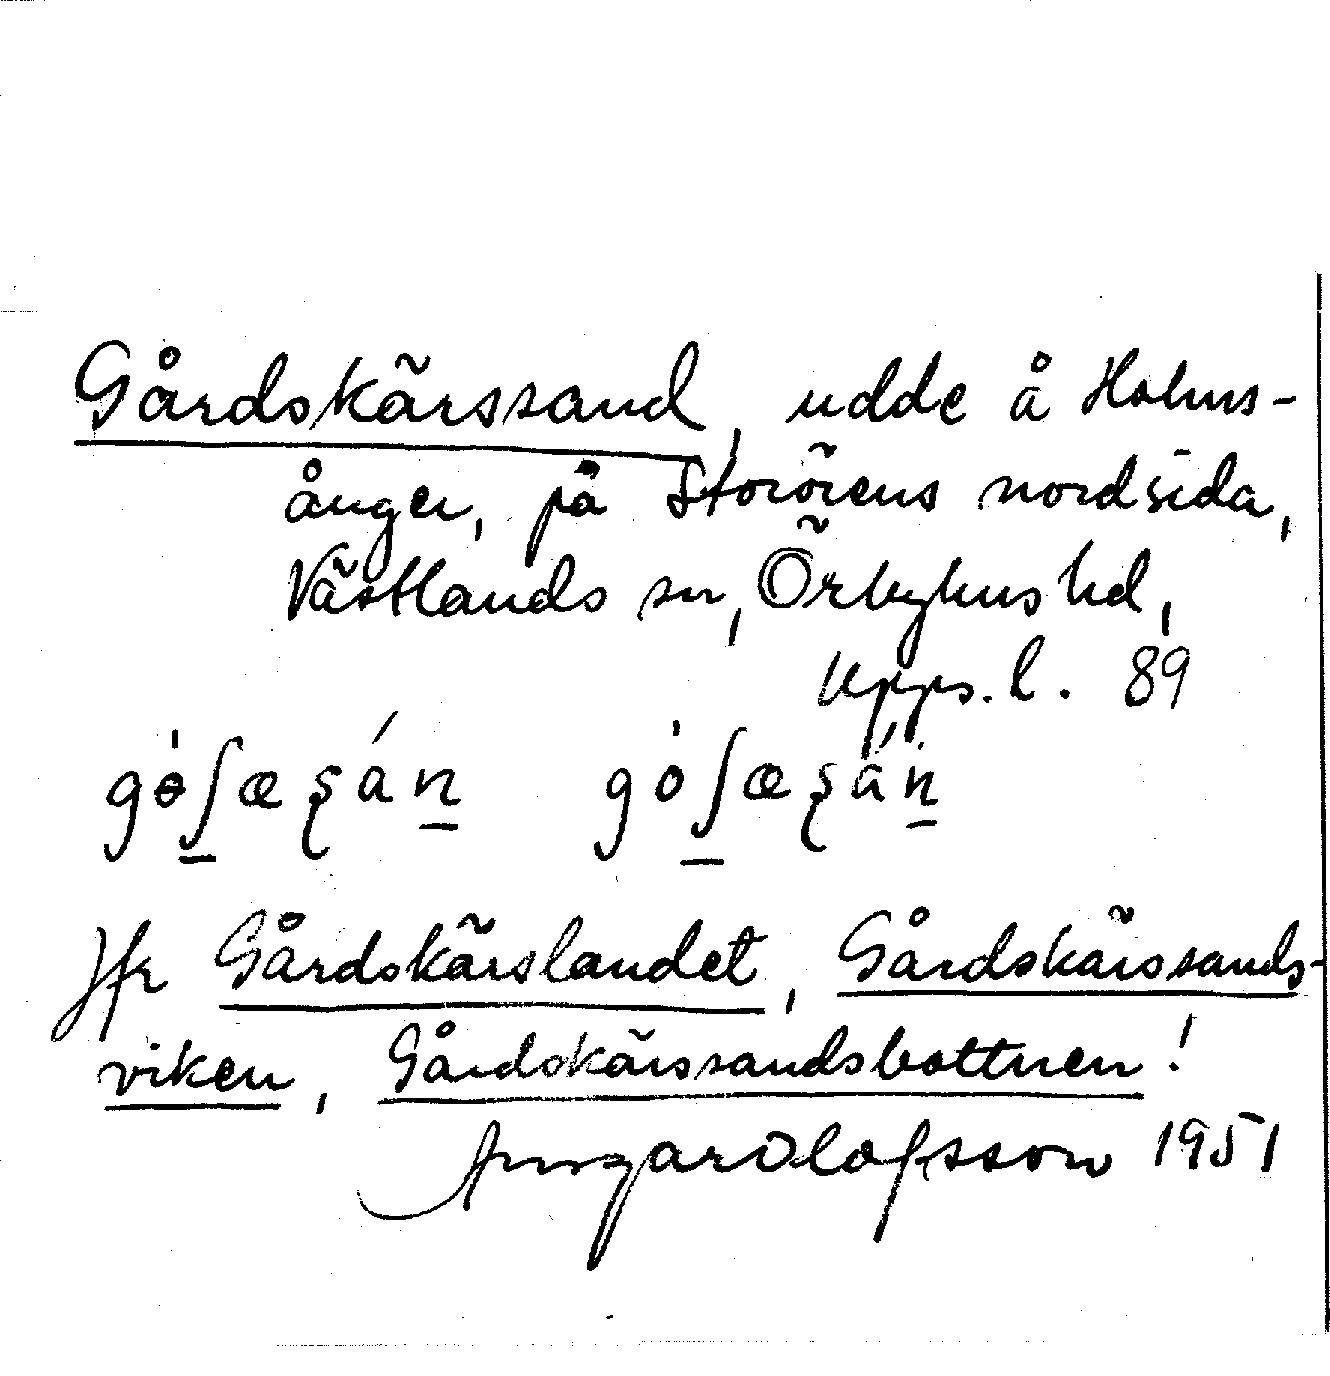 Gårdskärssand, udde å Holms-
ånger, på Storörens nordsida,
Västlands sn, Örbyhus hd,
Upps. l. 89
Jfr Gårdskärslandet, Gårdskärssands-
viken, Gårdskärssandsbottnen!
Olofsson 1951